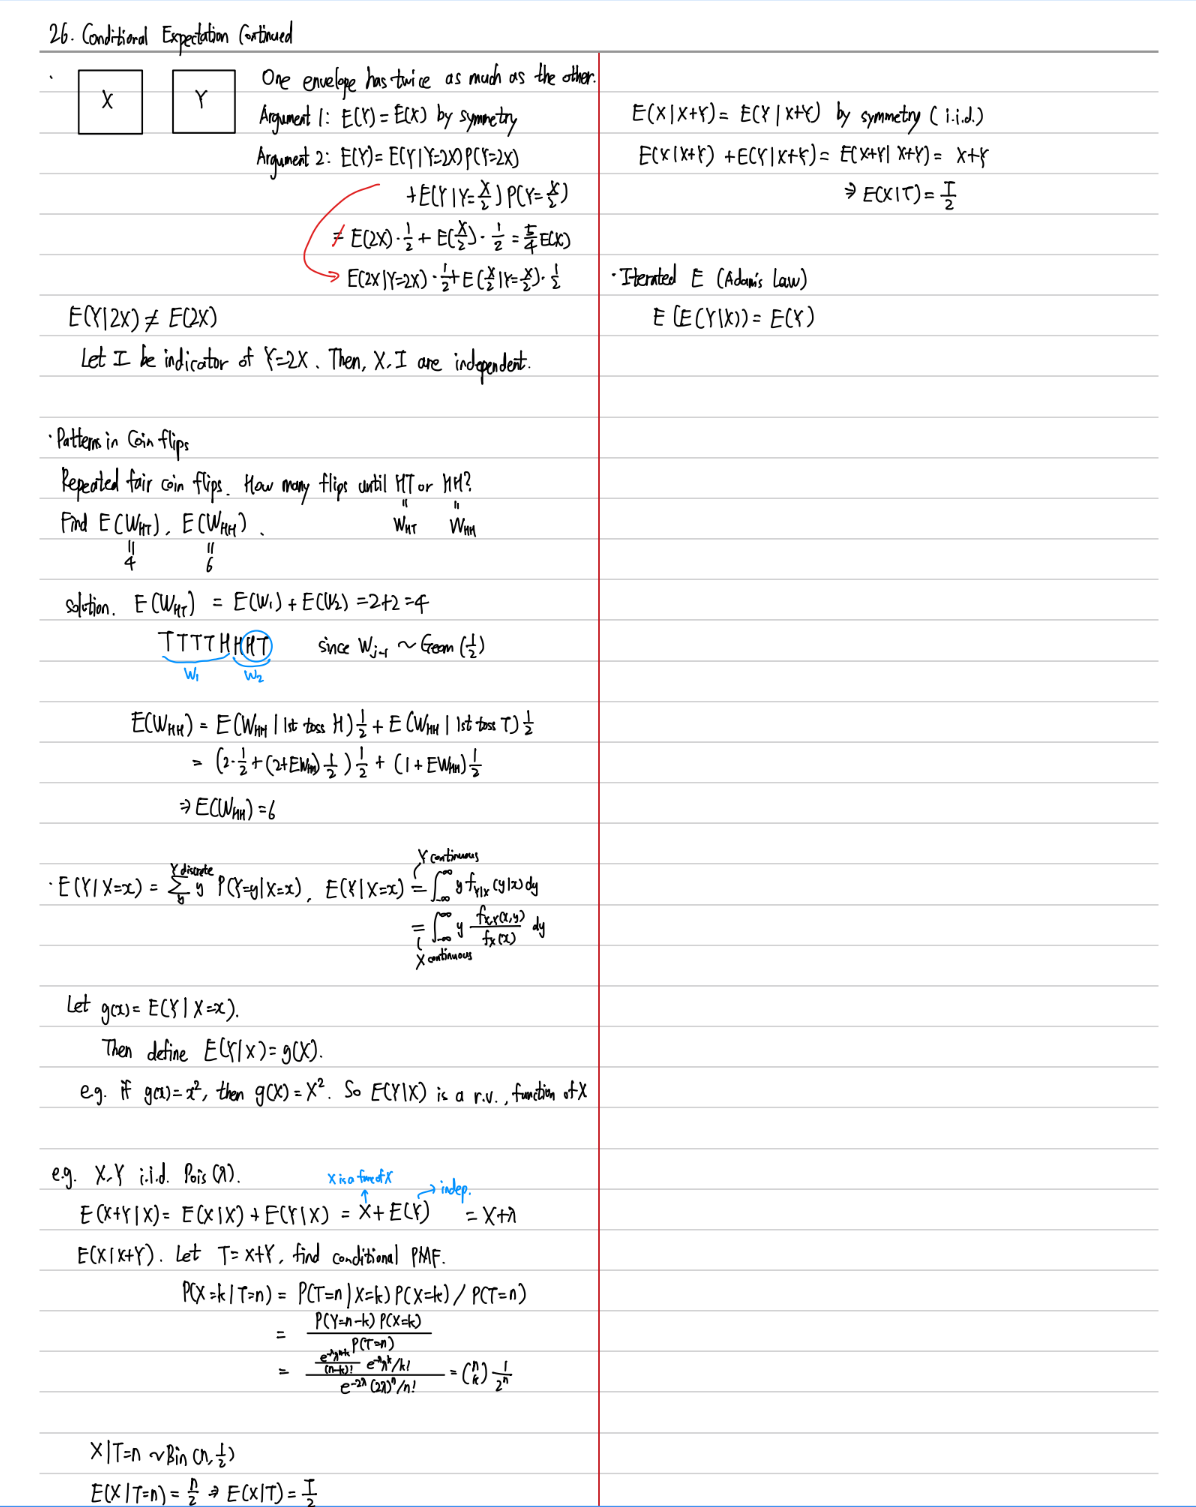 26. Conditional Expectation Continued
X Y One envelope has twice as much as the other.
Argument 1: E(Y) = E(X) by symmetry
Argument 2: E(Y) = E(Y|Y=2X)P(Y=2X)
+E(Y|Y=X/2)P(Y=X/2)
≠ E(2X)·1/2 + E(X/2)·1/2 = 5/4 E(X)
E(2X|Y=2X)·1/2 + E(X/2|Y=X/2)·1/2
E(Y|2X) ≠ E(2X)
Let I be indicator of Y=2X. Then, X, I are independent.
· Patterns in Coin flips
Repeated fair coin flips. How many flips until HT or HH?
Find E(W_HT), E(W_HH).
= W_HT = W_HH
= 4 = 6
solution. E(W_HT) = E(W_1) + E(W_2) = 2+2 = 4
TTTTHHHT since W_j-1 ~ Geom(1/2)
W_1 W_2
E(W_HH) = E(W_HH | 1st toss H) 1/2 + E(W_HH | 1st toss T) 1/2
= (2·1/2 + (2+EW_HH) 1/2) 1/2 + (1+EW_HH) 1/2
⇒ E(W_HH) = 6
Y discrete Y continuous
· E(Y|X=x) = Σ_y y P(Y=y|X=x), E(Y|X=x) = ∫_-∞^∞ y f_Y|X(y|x)dy
= ∫_-∞^∞ y f_X,Y(x,y)/f_X(x) dy
X continuous
Let g(x) = E(Y|X=x).
Then define E(Y|X) = g(X).
e.g. if g(x)=x², then g(X)=X². So E(Y|X) is a r.v., function of X
e.g. X, Y i.i.d. Pois(λ).
X is a func of X indep.
E(X+Y|X) = E(X|X) + E(Y|X) = X+E(Y) = X+λ
E(X|X+Y). Let T=X+Y, find conditional PMF.
P(X=k|T=n) = P(T=n|X=k)P(X=k) / P(T=n)
= P(Y=n-k)P(X=k) / P(T=n)
= e^-λ λ^n-k/(n-k)! e^-λ λ^k/k! / e^-2λ (2λ)^n/n! = (n k) 1/2^n
X|T=n ~ Bin(n, 1/2)
E(X|T=n) = n/2 ⇒ E(X|T) = T/2
E(X|X+Y) = E(Y|X+Y) by symmetry (i.i.d.)
E(X|X+Y) + E(Y|X+Y) = E(X+Y|X+Y) = X+Y
⇒ E(X|T) = T/2
· Iterated E (Adam's Law)
E(E(Y|X)) = E(Y)